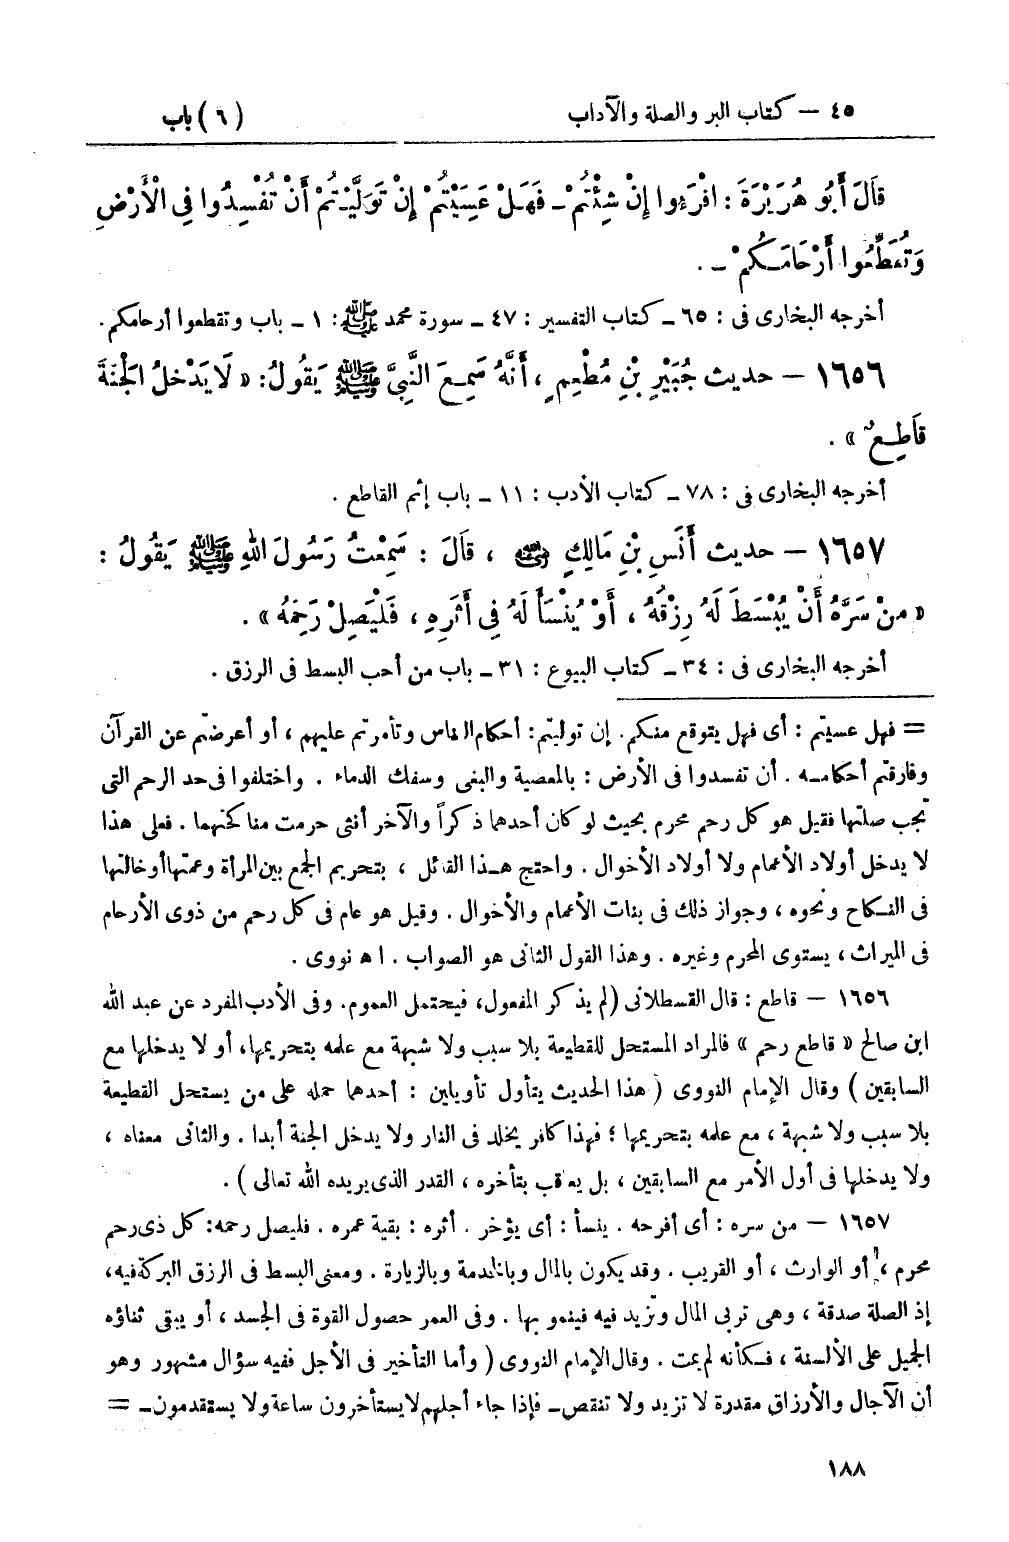 ٤٥ – كتاب البر والصلة والآداب (٦) باب
قَالَ أَبُو هُرَيْرَةَ : اقْرَءُوا إِنْ شِئْتُمْ ـ فَهَلْ عَسَيْتُمْ إِنْ تَوَلَّيْتُمْ أَنْ تُفْسِدُوا فِى الْأَرْضِ
وَتُقَطِّعُوا أَرْحَامَكُمْ ـ .
أخرجه البخارى فى : ٦٥ ـ كتاب التفسير : ٤٧ ـ سورة محمد ﷺ : ١ ـ باب وتقطعوا أرحامكم.
١٦٥٦ – حديث جُبَيْرِ بْنِ مُطْعِمٍ ، أَنَّهُ سَمِعَ النَّبِىَّ ﷺ يَقُولُ: « لَا يَدْخلُ الْجَنَّةَ
قَاطِعٌ » .
أخرجه البخارى فى : ٧٨ ـ كتاب الأدب : ١١ ـ باب إثم القاطع .
١٦٥٧ – حديث أَنَسِ بْنِ مَالِكٍ رضي الله عنه ، قَالَ : سَمِعْتُ رَسُولَ اللهِ ﷺ يَقُولُ :
« مَنْ سَرَّهُ أَنْ يُبْسَطَ لَهُ رِزْقُهُ ، أَوْ يُنْسَأَ لَهُ فِى أَثَرِهِ ، فَلْيَصِلْ رَحِمَهُ » .
أخرجه البخارى فى : ٣٤ ـ كتاب البيوع : ٣١ ـ باب من أحب البسط فى الرزق .
= فهل عسيتم : أى فهل يتوقع منكم. إن توليتم: أحكام الناس وتأمرتم عليهم ، أو أعرضتم عن القرآن
وفارقتم أحكامه . أن تفسدوا فى الأرض : بالمعصية والبغى وسفك الدماء . واختلفوا فى حد الرحم التى
تجب صلتها فقيل هو كل رحم محرم بحيث لو كان أحدهما ذكراً والآخر أنثى حرمت مناكحتهما . فعلى هذا
لا يدخل أولاد الأعمام ولا أولاد الأخوال . واحتج هذا القائل ، بتحريم الجمع بين المرأة وعمتها أو خالتها
فى النكاح ونحوه ، وجواز ذلك فى بنات الأعمام والأخوال . وقيل هو عام فى كل رحم من ذوى الأرحام
فى الميراث ، يستوى المحرم وغيره . وهذا القول الثانى هو الصواب . ا ه نووى .
١٦٥٦ – قاطع : قال القسطلانى ( لم يذكر المفعول، فيحتمل العموم. وفى الأدب المفرد عن عبد الله
ابن صالح « قاطع رحم » فالمراد المستحل للقطيعة بلا سبب ولا شبهة مع علمه بتحريمها، أو لا يدخلها مع
السابقين ) وقال الإمام النووى ( هذا الحديث يتأول تأويلين : أحدهما حمله على من يستحل القطيعة
بلا سبب ولا شبهة ، مع علمه بتحريمها ؛ فهذا كافر يخلد فى النار ولا يدخل الجنة أبدا . والثانى معناه ،
ولا يدخلها فى أول الأمر مع السابقين ، بل يعاقب بتأخره ، القدر الذى يريده الله تعالى ) .
١٦٥٧ – من سره : أى أفرحه . ينسأ : أى يؤخر . أثره : بقية عمره . فليصل رحمه: كل ذى رحم
محرم ، أو الوارث ، أو القريب . وقد يكون بالمال وبالخدمة وبالزيارة . ومعنى البسط فى الرزق البركة فيه،
إذ الصلة صدقة ، وهى تربى المال وتزيد فيه فينمو بها . وفى العمر حصول القوة فى الجسد ، أو يبقى ثناؤه
الجميل على الألسنة ، فكأنه لم يمت . وقال الإمام النووى ( وأما التأخير فى الأجل ففيه سؤال مشهور وهو
أن الآجال والأرزاق مقدرة لا تزيد ولا تنقص ـ فإذا جاء أجلهم لا يستأخرون ساعة ولا يستقدمون ـ =
١٨٨